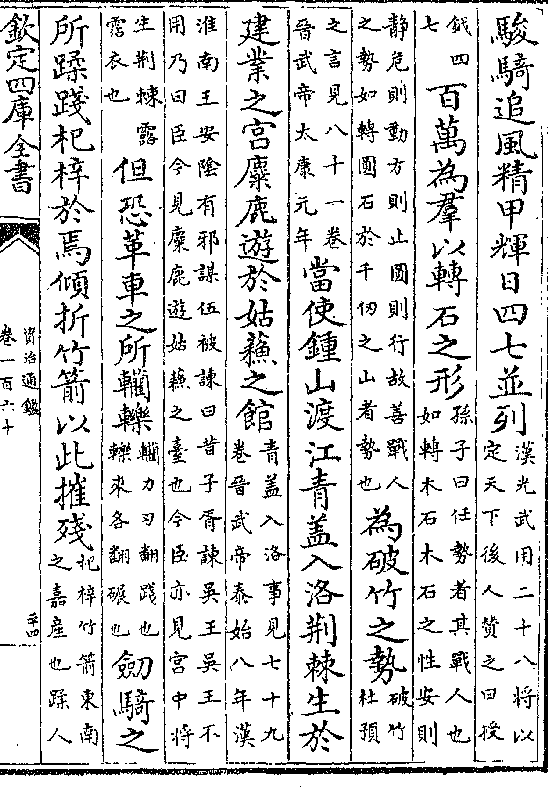 駿騎追風精甲輝日四七並列漢光武用二十八將以定天下後人贊之曰授
鉞四七百萬為羣以轉石之形孫子曰任勢者其戰人也如轉木石木石之性安則
静危則動方則止圓則行故善戰人之勢如轉圓石於千仞之山者勢也為破竹之勢破竹杜預
之言見八十一卷晉武帝太康元年當使鍾山渡江青蓋入洛荆棘生於
建業之宫麋鹿遊於姑蘇之館青蓋入洛事見七十九卷晉武帝泰始八年漢
淮南王安隂有邪謀伍被諫曰昔子胥諫吳王吳王不用乃曰臣今見麋鹿遊姑蘇之臺也今臣亦見宫中將
生荆棘露霑衣也但恐革車之所轥轢轥力刃翻踐也轢來各翻碾也劒騎之
所蹂踐杞梓於焉傾折竹箭以此摧殘杞梓竹箭東南之嘉産也蹂人
欽定四庫全書
資治通鑑
卷一百六十
二十四